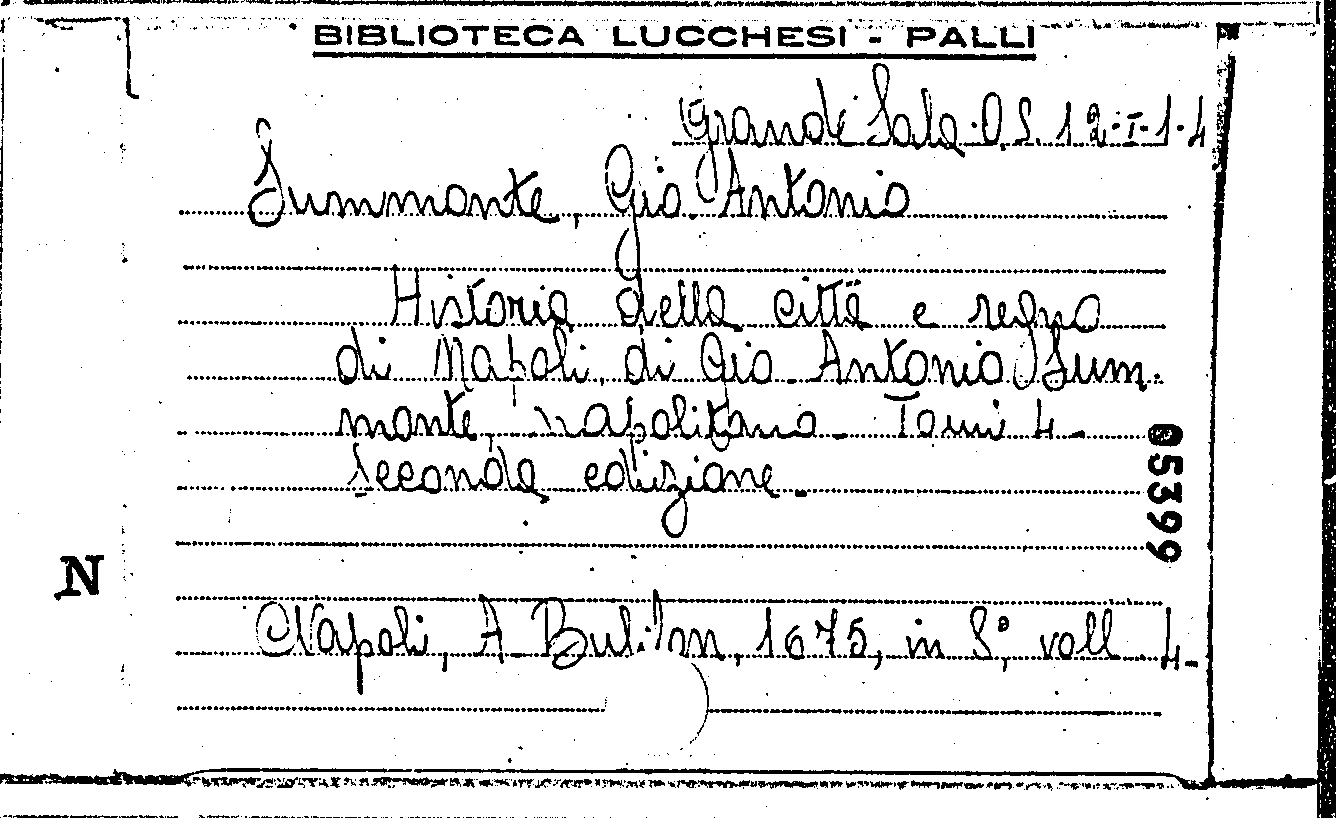 BIBLIOTECA LUCCHESI - PALLI
Grande Sala. O. S. 12-I-1-4
Summonte, Gio. Antonio
Historia della città e regno
di Napoli, di Gio. Antonio Sum-
monte, napolitano. Tomi 4.
Seconda edizione.
05399
N
Napoli, A. Bulifon, 1675, in 8°, voll. 4.